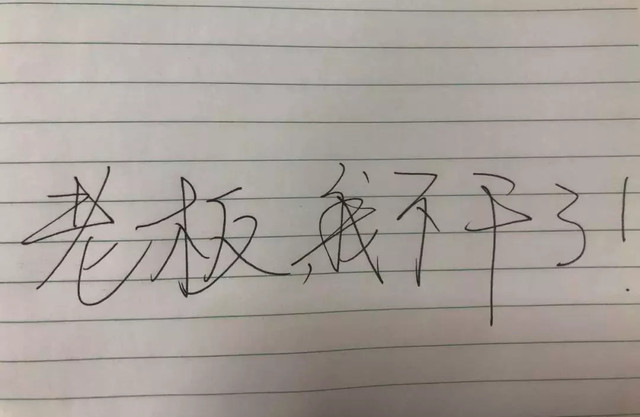 老板,我不干了!